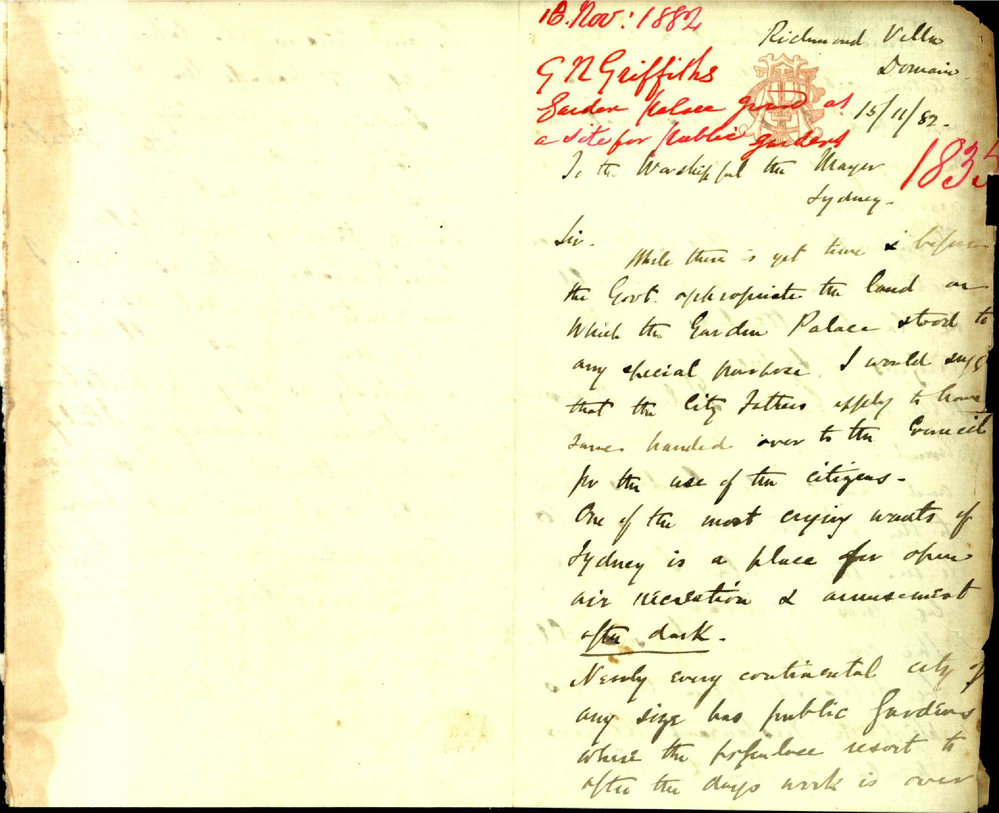 16. Nov: 1882
G N Griffiths
Garden palace ground as
a site for public gardens
Richmond Villa
Domain
15/11/82-
1835
To the Worshipful the Mayor
Sydney-
Sir-
While there is yet time & before
the Govt. appropriate the land on
which the Garden Palace stood to
any special purpose. I would sugg
that the City Fathers apply to have
same handed over to the Council
for the use of the citizens-
One of the most crying wants of
Sydney is a place for open
air recreation & amusement
after dark-
Nearly every continental city of
any size has public Gardens
where the populace resort to
after the days work is over